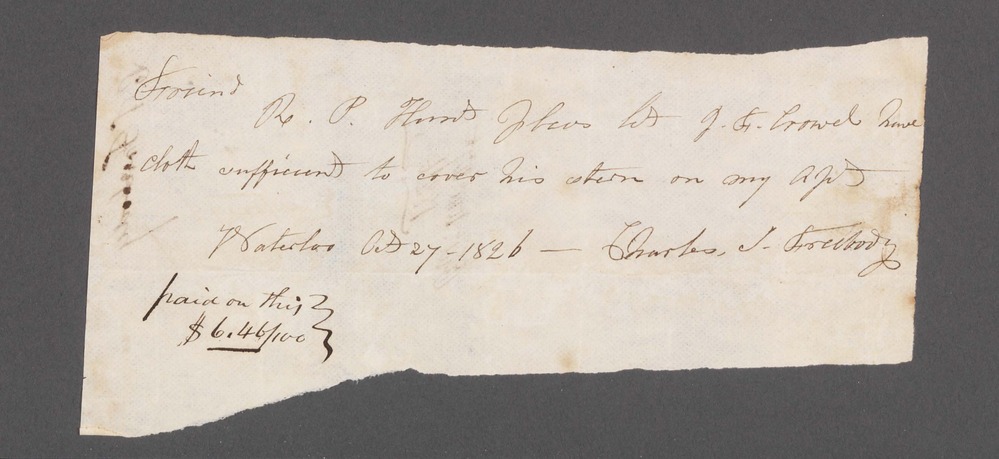 Froiend
R. P. Hunt Pleas let J. F. Crowel have
cloth sufficient to cover his stern on my Apt
Waterloo Oct 27 - 1826 — Charles, J. Freebody
paid on this
$ 6.46/100